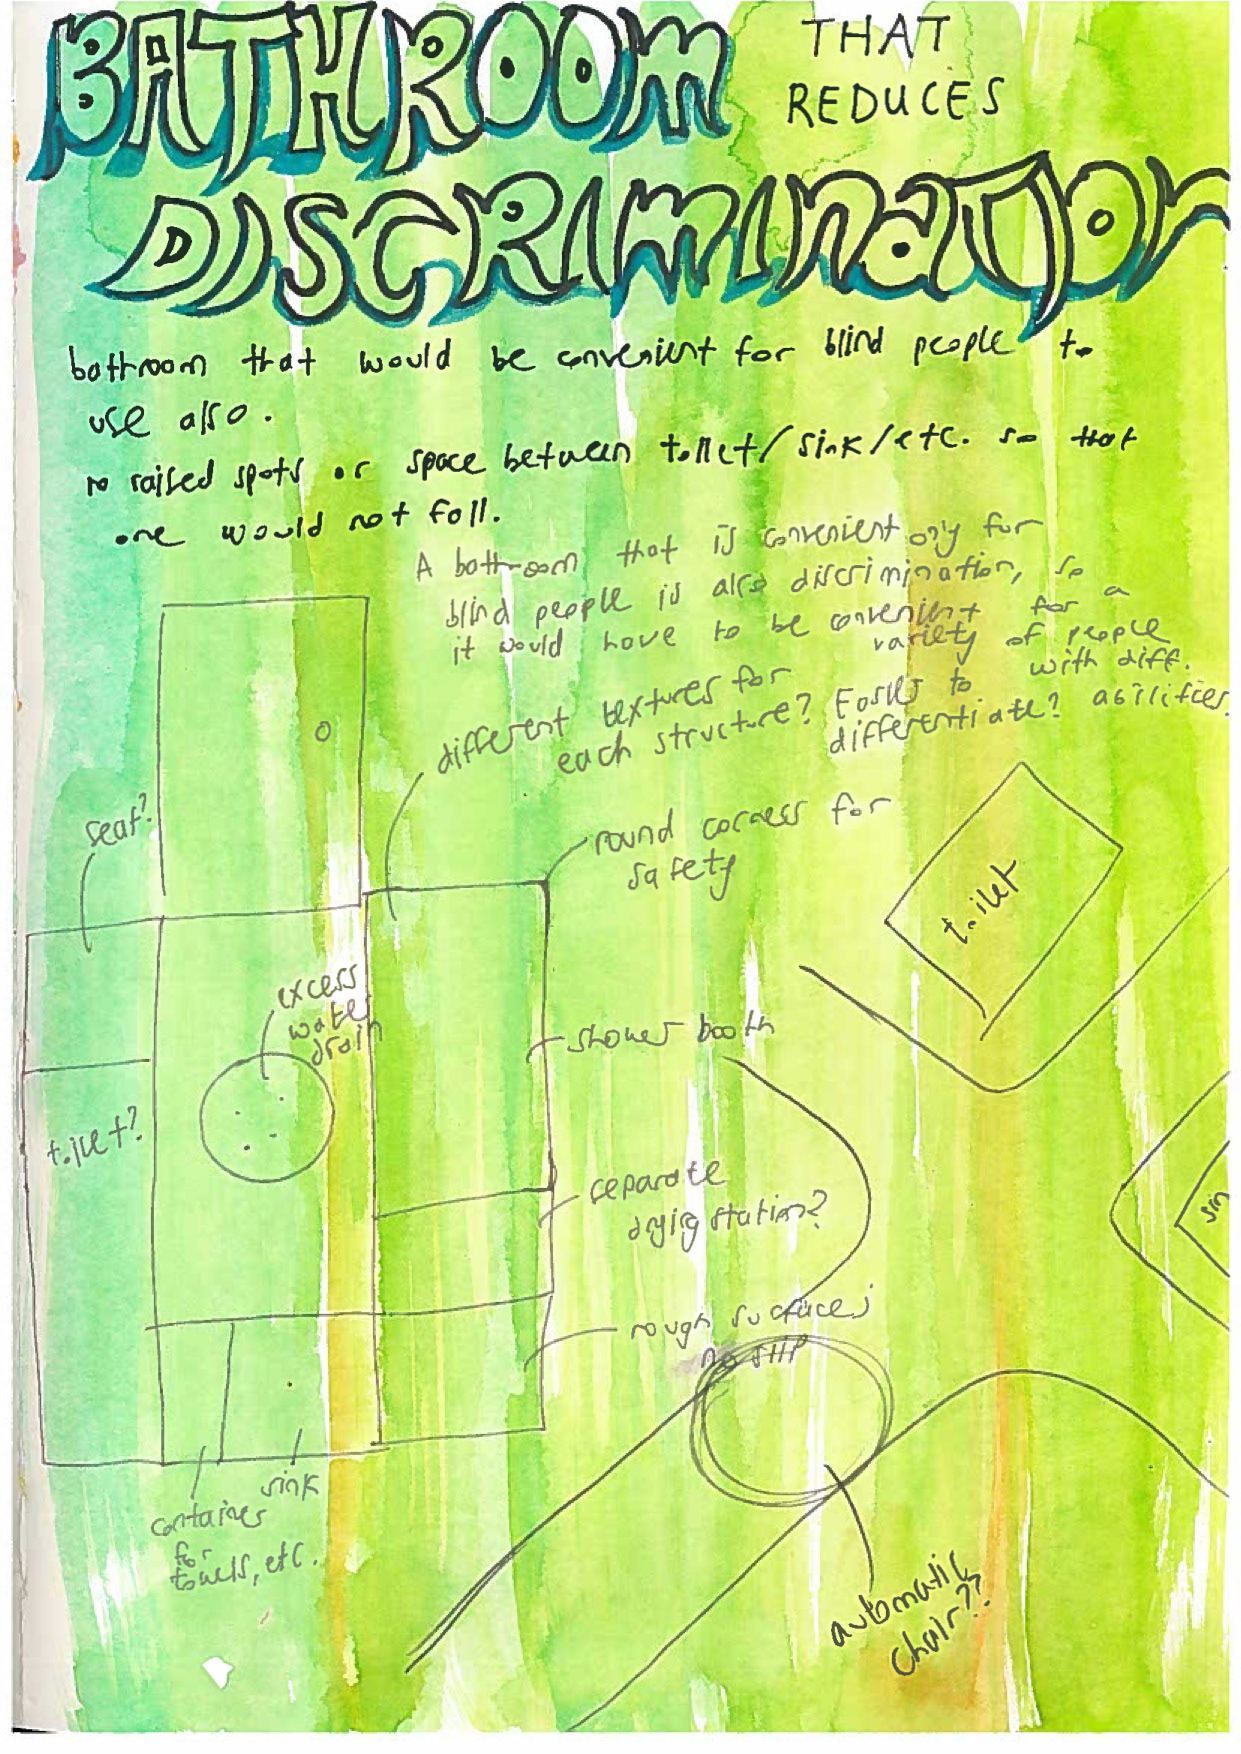 BATHROOM
THAT
REDUCES
DISCRIMINATION
bathroom that would be convenient for blind people to
use also.
no raised spots or space between toilet/sink/etc. so that
one would not fall.
A bathroom that is convenient only for
blind people is also discrimination, so
it would have to be convenient for a
variety of people
with diff.
abilities.
different textures for
each structure? Easier to
differentiate?
seat?
round corners for
safety
toilet
excess
water
drain
shower booth
toilet?
separate
drying station?
sin
rough surface;
no slip
sink
container
for
towels, etc.
automatic
chair??